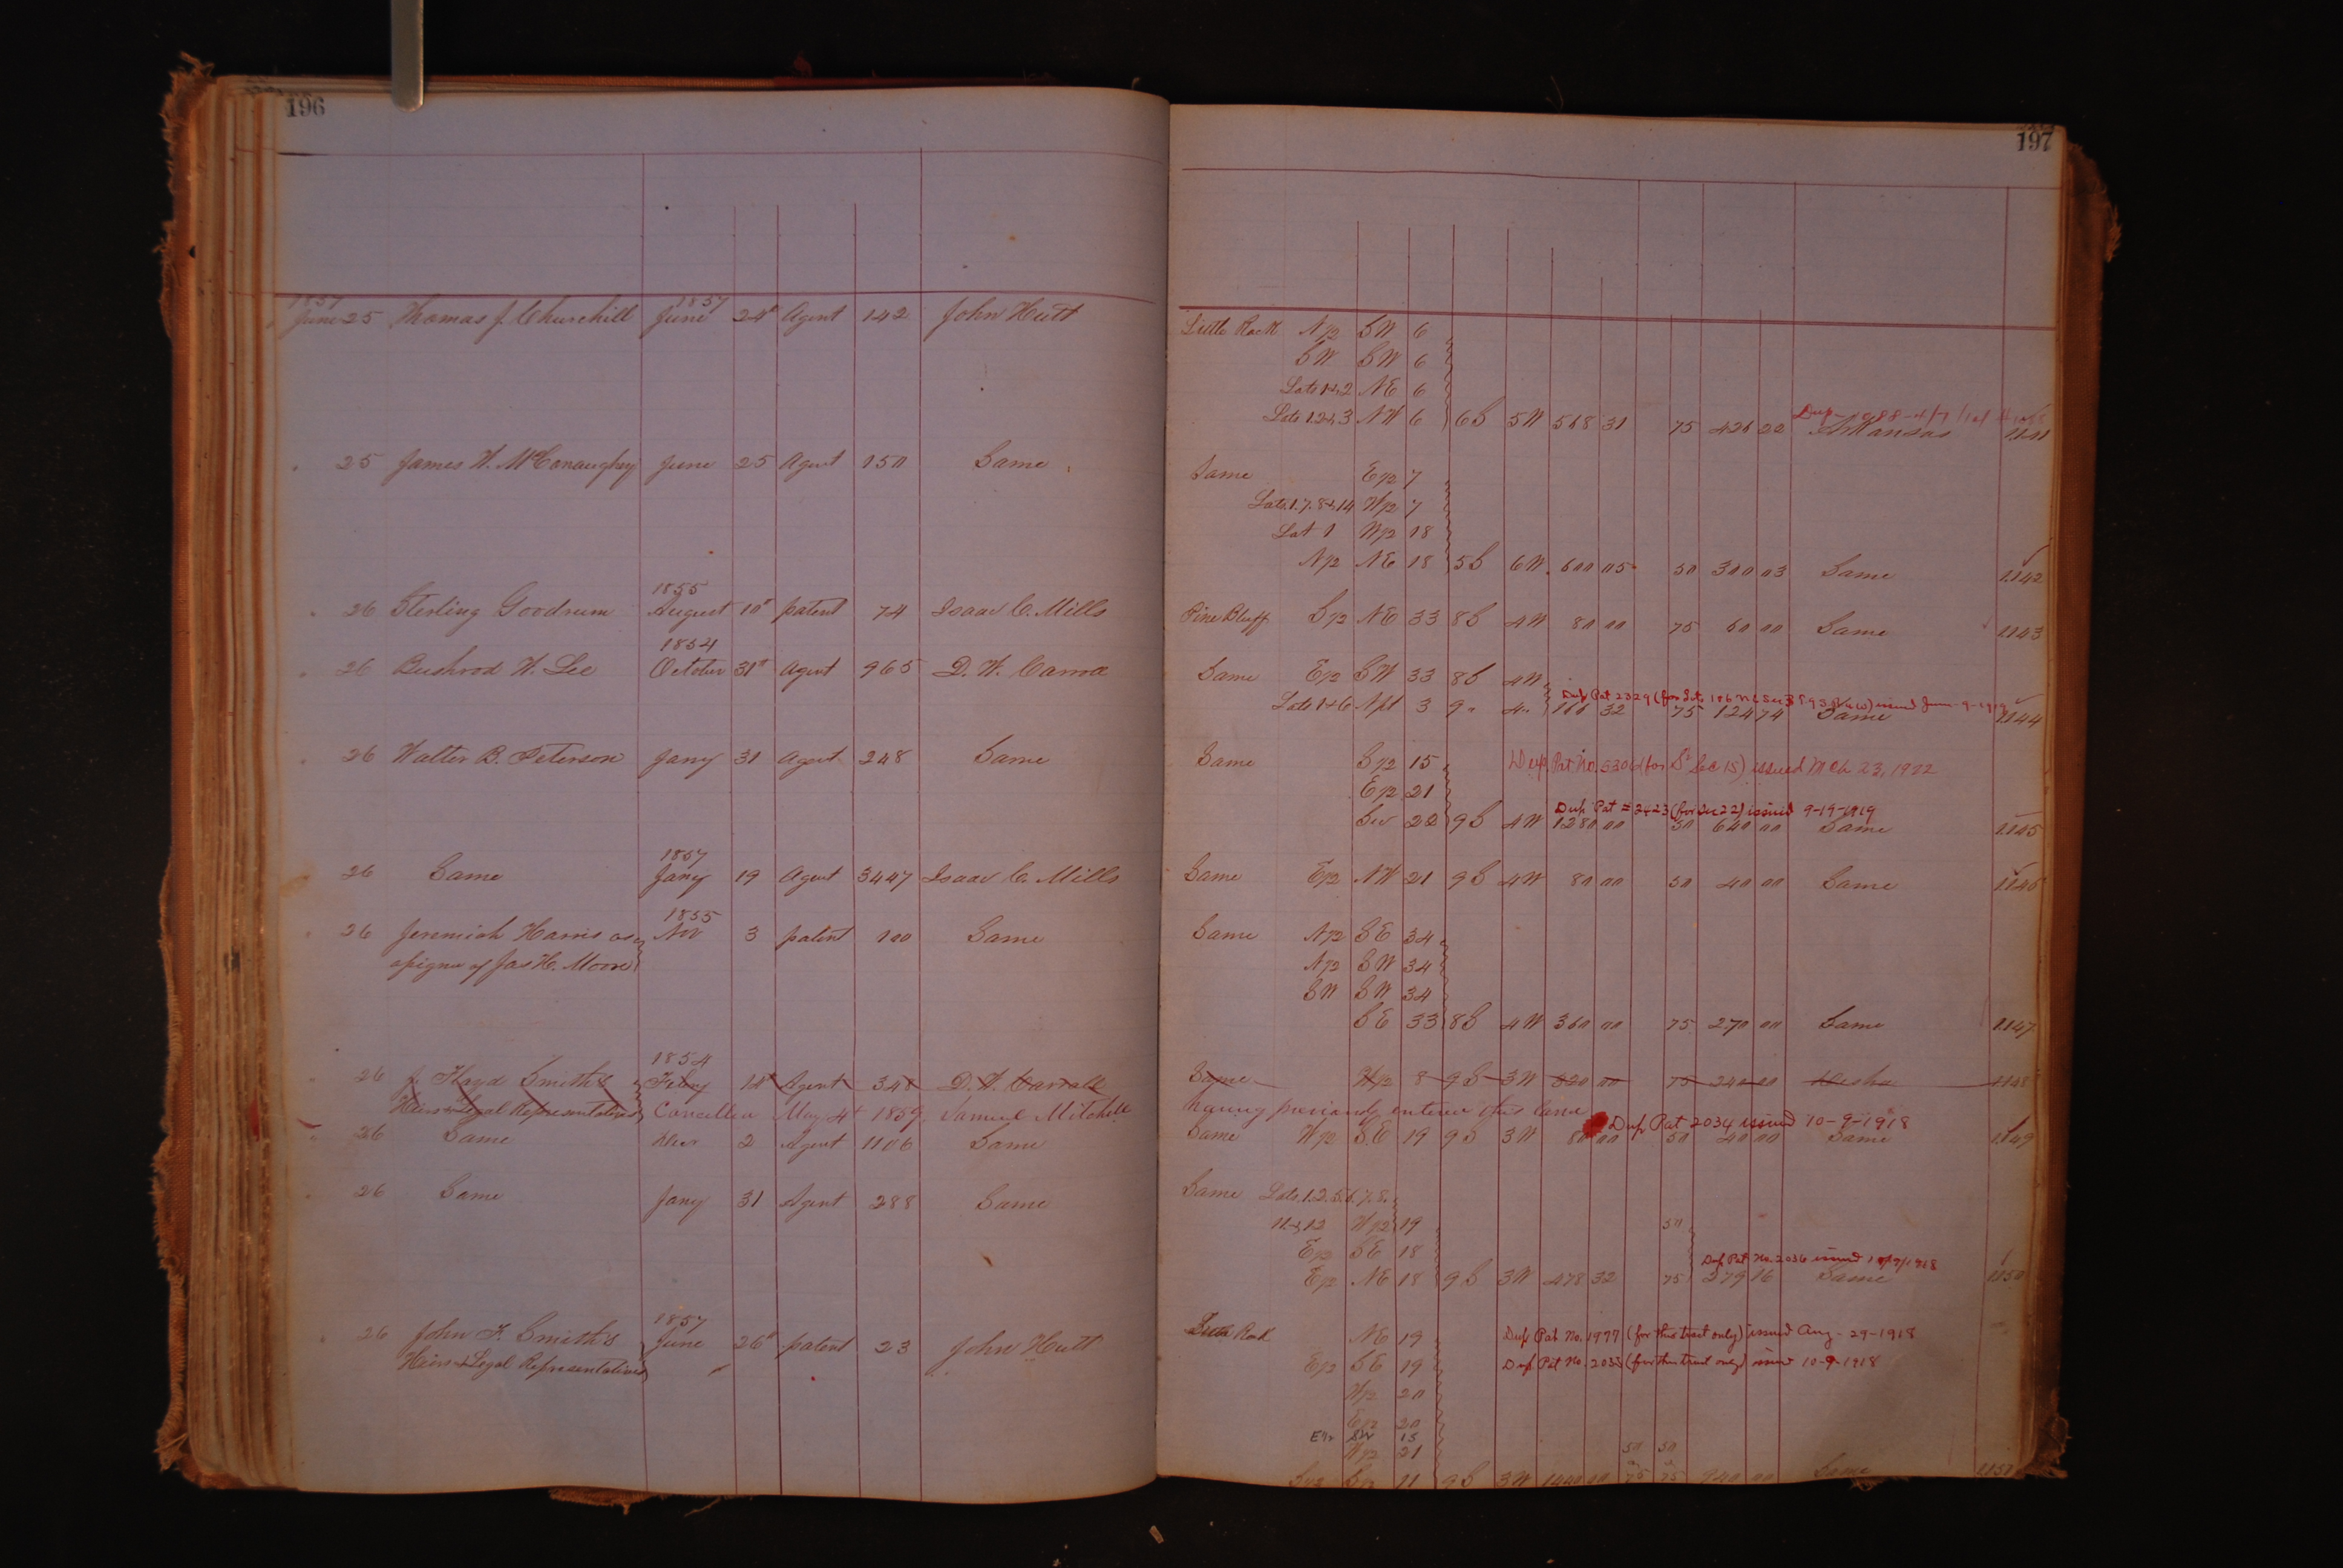 196
1857 1857
June 25 Thomas J. Churchill June 24th Agent 142 John Hutt
" 25 James W. McConaughey June 25 Agent 150 Same
1855
" 26 Sterling Goodrum August 10th patent 74 Isaac C. Mills
1854
" 26 Bushrod W. Lee October 31st Agent 965 D. W. Carroll
" 26 Walter B. Peterson Jany 31 Agent 248 Same
1857
26 Same Jany 19 Agent 3447 Isaac C. Mills
1855
" 26 Jeremiah Harris as Nov 3 patent 100 Same
assignee of Jas H. Moore
1854
" 26 J. Floyd Smith's Feby 14th Agent 348 D. W. Carroll
Heirs & Legal Representatives Cancelled May 4th 1859, Samuel Mitchell
" 26 Same Decr 2 Agent 1106 Same
" 26 Same Jany 31 Agent 288 Same
1857
" 26 John F. Smith's June 26th patent 23 John Hutt
Heirs & Legal Representatives "
197
Little Rock N/2 SW 6
SW SW 6
Lots 1 & 2 NE 6
Lots 1.2 & 3 NW 6 6S 5W 568 31 75 426 22 Arkansas 1141
Same E/2 7
Lots 1.7.8 & 14 W/2 7
Lot 1 W/2 18
N/2 NE 18 5S 6W 600 05 50 300 03 Same 1142
Pine Bluff S/2 NE 33 8S 4W 80 00 75 60 00 Same 1143
Same E/2 SW 33 8S 4W
Dup Pat 2329
Lots 1 & 6 Npt 3 9" 4" 166 32 75 124 74 Same 1144
Same S/2 15 Dup. Pat No. 5306 (for S2 Sec 15) issued Mch 23, 1922
E/2 21
Dup Pat = 2423 (for Sec 22) issued 9-19-1919
Sec 22 9S 4W 1280 00 50 640 00 Same 1145
Same E/2 NW 21 9S 4W 80 00 50 40 00 Same 1146
Same N/2 SE 34
N/2 SW 34
SW SW 34
SE 33 8S 4W 360 00 75 270 00 Same 1147
Same W/2 8 9S 3W 320 00 75 240 00 Desha 1148
having previously entered this land
Dup Pat 2034 issued 10-9-1918
Same W/2 SE 19 9S 3W 80 00 50 40 00 Same 1149
Same Lots 1.2.5.6.7.8.
11 & 12 W/2 19 50
E/2 SE 18
Dup Pat No. 2036 issued 10/9/1918
E/2 NE 18 9S 3W 478 32 75 279 16 Same 1150
Little Rock NE 19 Dup Pat No. 1977 (for this tract only) issued Aug-29-1918
E/2 SE 19 Dup Pat No. 2035 (for this tract only) issued 10-9-1918
W/2 20
E/2 20
E1/2 SW 15
W/2 21 50 50
S/2 S/2 11 9S 3W 1440 00 75 75 940 00 Same 1151